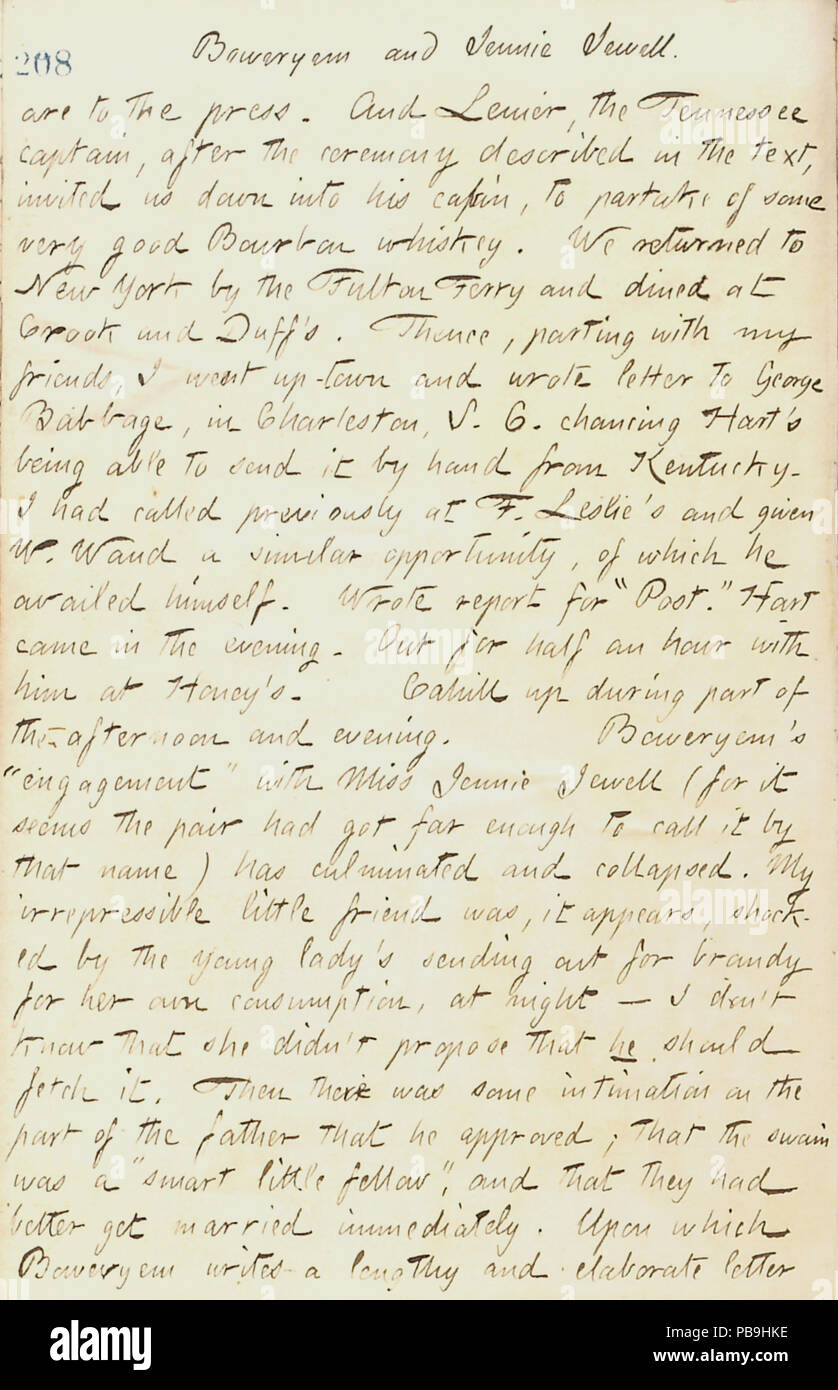 208
Boweryem and Jennie Jewell.
are to the press. And Lenier, the Tennessee
captain, after the ceremony described in the text,
invited us down into his cabin, to partake of some
very good Bourbon whiskey. We returned to
New York by the Fulton Ferry and dined at
Crook and Duff's. Thence, parting with my
friends, I went up-town and wrote letter to George
Babbage, in Charleston, S. C. chancing Hart's
being able to send it by hand from Kentucky.
I had called previously at F. Leslie's and given
W. Waud a similar opportunity, of which he
availed himself. Wrote report for "Post." Hart
came in the evening. Out for half an hour with
him at Honey's. Cahill up during part of
the afternoon and evening. Boweryem's
"engagement" with Miss Jennie Jewell (for it
seems the pair had got far enough to call it by
that name) has culminated and collapsed. My
irrepressible little friend was, it appears, shock-
ed by the young lady's sending out for brandy
for her own consumption, at night — I don't
know that she didn't propose that he should
fetch it. Then there was some intimation on the
part of the father that he approved; that the swain
was a "smart little fellow", and that they had
better get married immediately. Upon which
Boweryem writes a lengthy and elaborate letter
alamy
alamy stock photo
Image ID: PB9HKE
www.alamy.com